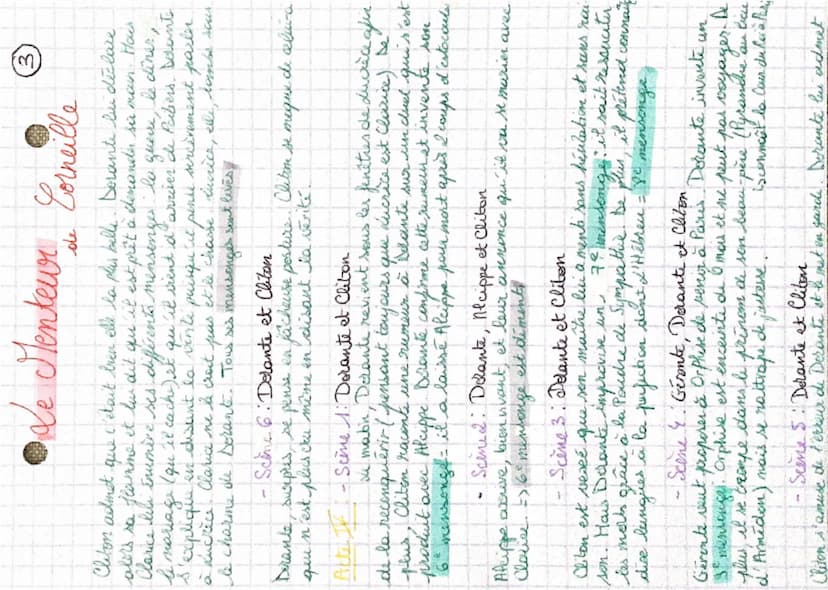 ③
Le Menteur
de Corneille
Cliton admet que c'était bien elle la plus belle. Dorante lui déclare
alors sa flamme et lui dit qu'il est prêt à demander sa main. Mais
Clarice lui énumère ses différents mensonges : la guerre, le dîner,
le mariage (qu'il cache) et qu'il vient d'arriver de Poitiers. Dorante
s'explique en disant la vérité puisqu'il pense sincèrement parler
à Lucrèce. Clarice ne le croit pas et le
le charme de Dorante. Tous ses mensonges sont
- Scène 6 : Dorante et Cliton
Dorante, surpris, se pense en fâcheuse posture. Cliton se moque de
qui n'est plus cru même en faisant la vérité
Acte IV : - Scène 1 : Dorante et Cliton
au matin. Dorante revient sous les fenêtres de Lucrèce afin
de la reconquérir (pensant toujours que Lucrèce est Clarice). De
plus, Cliton raconte une rumeur à Dorante sur un duel qui s'est
produit avec Alcippe. Dorante confirme cette rumeur et invente son
6e mensonge = il a laissé Alcippe pour mort après 2 coups d'estocade
- Scène 2 : Dorante, Alcippe et Cliton
Alcippe arrive, bien vivant, et leur annonce qu'il va se marier avec
Clarice. => 6e mensonge est démenti
- Scène 3 : Dorante et Cliton
Cliton est vexé que son maître lui a menti sans hésitation et sans
son. Mais Dorante improvise un 7e mensonge : il sait ressusciter
les morts grâce à la Poudre de Sympathie. De plus, il prétend connaître
dix langues à la perfection dont l'Hébreu = 8e mensonge
- Scène 4 : Géronte, Dorante et Cliton
Géronte veut proposer à Orphise de venir à Paris. Dorante invente un
9e mensonge : Orphise est enceinte de 6 mois et ne peut pas voyager. De
plus, il se trompe dans le prénom de son beau-père (Pyrandre au lieu
d'Armédon) mais se rattrape de justesse.
- Scène 5 : Dorante et Cliton
Cliton s'amuse de l'erreur de Dorante et le met en garde. Dorante lui admet